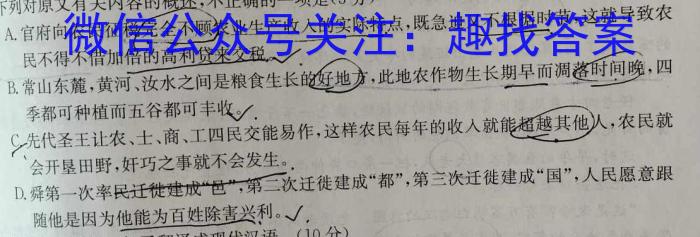 下列对原文有关内容的概述,不正确的一项是(3分)
A.官府向农民征税完全不顾农业生产收入的实际特点,既急迫又不根据时节,这就导致农
微信公众号关注:趣找答案
民不得不借加倍的高利贷来交税。
B.常山东麓,黄河、汝水之间是粮食生长的好地方,此地农作物生长期早而凋落时间晚,四
季都可种植而五谷都可丰收。
C.先代圣王让农、士、商、工四民交能易作,这样农民每年的收入就能超越其他人,农民就
会开垦田野,奸巧之事就不会发生。
D.舜第一次率民迁徙建成“邑”,第二次迁徙建成“都”,第三次迁徙建成“国”,人民愿意跟
随他是因为他能为百姓除害兴利。
译成现代汉语。(10分)